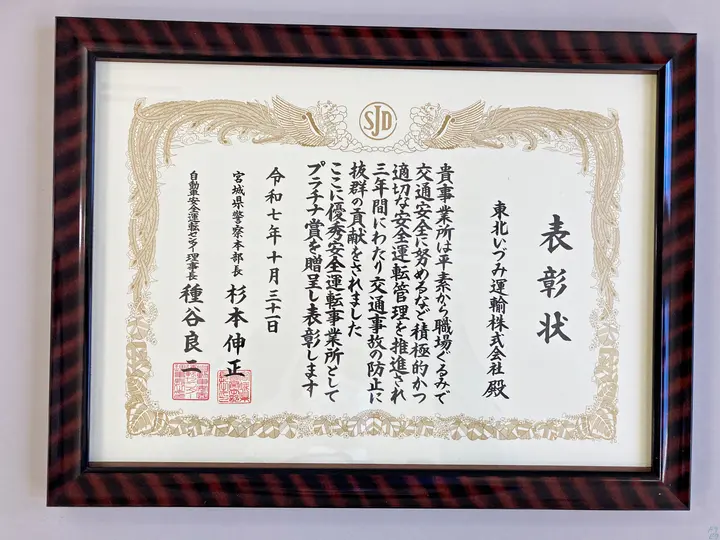 SJD
表彰状
東北いづみ運輸株式会社 殿
貴事業所は平素から職場ぐるみで
交通安全に努めるなど積極的かつ
適切な安全運転管理を推進され
三年間にわたり交通事故の防止に
抜群の貢献をされました
ここに優秀安全運転事業所として
プラチナ賞を贈呈し表彰します
令和七年十月三十一日
宮城県警察本部長 杉本伸正
自動車安全運転センター理事長 種谷良二